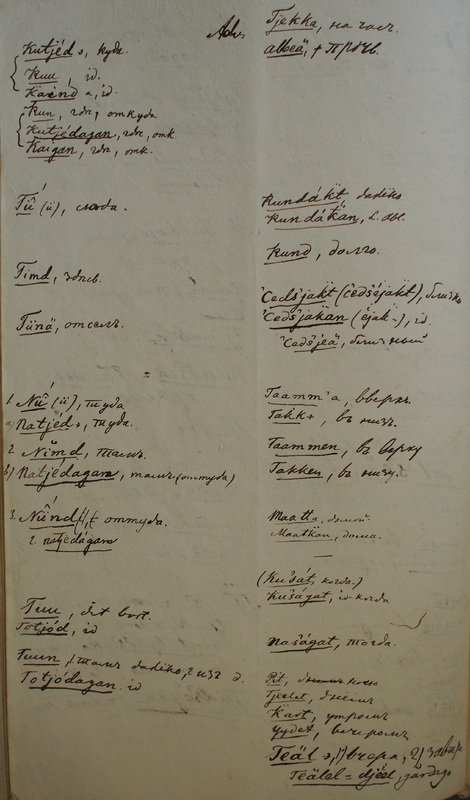 Adv.
Kutjéd ɔ, куда.
Kuu, id.
Kaend a, id.
Kun, гдѣ, откуда
Kutjódagan, гдѣ, отк.
Kaigan, гдѣ, отк.
Tŭ (ü), сюда.
Timd, здѣсь.
Tünä, отсель.
1. Nŭ (ü), туда
a) Natjed, туда.
2. Nĭmd, тамъ.
b) Natjédagan, тамъ (оттуда)
3. Nŭnd, оттуда.
2. natjedágan
Tuu, dit bort.
Totjód, id
Tuun, тамъ далёко, 2 изъ
Totjódagan. id
Tjekka, на часъ.
albeä, прочь.
Kundákt, далёко
Kundákan, L. abl.
Kund, долго.
Cedšjakt (cedšéjakt), близко
Cedšjákan (ejak-), id.
Cedšjeä, близный
Taamm'a, вверхъ.
Takk, въ низъ.
Taammen, въ верху
Takken, въ низу.
Maatta, домой.
Maatkan, дома.
(Kušát, когда.)
Kušágat, id когда
našágat, тогда.
Pit,
Tjeelet, днёмъ
Kart, утромъ
üdet, вечеромъ
Teäl ɔ, 1) вчера, 2) завтра
Teälel = djéel,